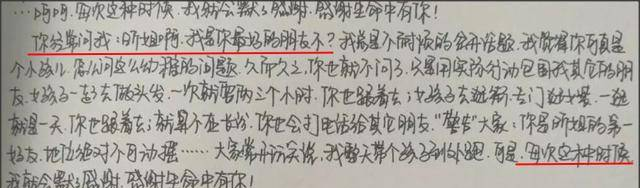 …呵呵,每次这种时候,我就会默默感谢,感谢生命中有你!
你经常问我:昕姐啊,我是你最好的朋友不?我总是不耐烦的岔开话题,我觉得你可真是
个小孩儿,怎么问这么幼稚的问题.久而久之,你也就不问了.只是用实际行动包围我其它的朋
友,女孩子一起去做头发,一次就要两三个小时,你也跟着去;女孩子去逛街,去门
就是一天,你也跟着去;就算不在长沙,你也会打电话给其它朋友,"警告"大家:你是昕姐的第一
好友,地位绝对不可动摇……大家常开玩笑说,我整天带个孩子到处跑.可是,每次这种时候
我就会默默感谢,感谢生命中有你!